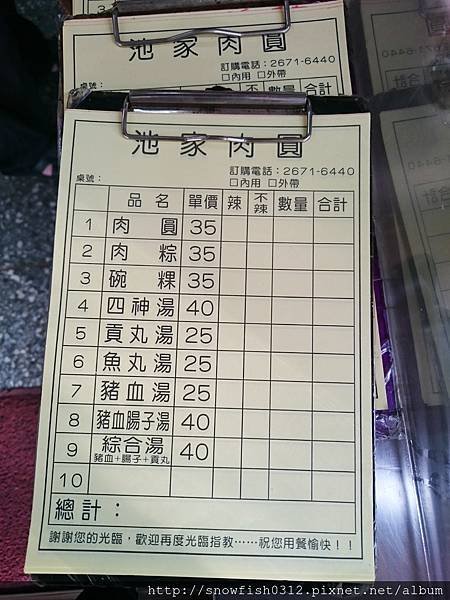 池家肉圓
訂購電話：2671-6440
□內用 □外帶
不 數量 合計
池家肉圓
訂購電話：2671-6440
桌號： □內用 □外帶
品名 單價 辣 不辣 數量 合計
1 肉圓 35
2 肉粽 35
3 碗粿 35
4 四神湯 40
5 貢丸湯 25
6 魚丸湯 25
7 豬血湯 25
8 豬血腸子湯 40
9 綜合湯 40
豬血+腸子+貢丸
10
總計：
謝謝您的光臨，歡迎再度光臨指教……祝您用餐愉快！！
http://snowfish0312.pixnet.net/album